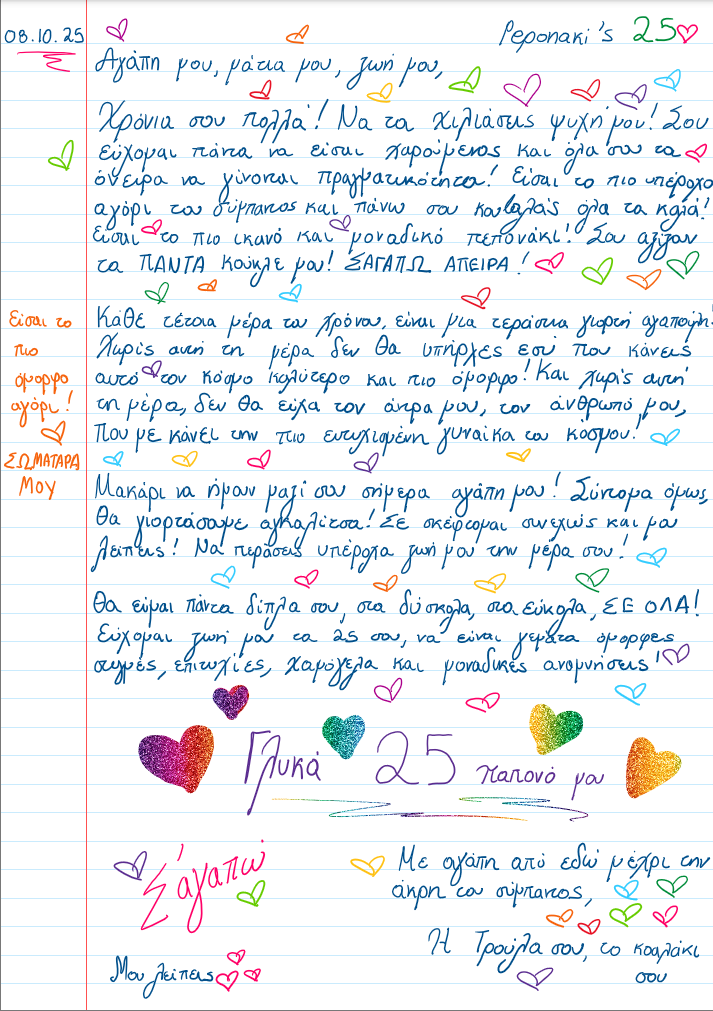 08.10.25
Peponaki's 25
Αγάπη μου, μάτια μου, ζωή μου,
Χρόνια σου πολλά! Να τα χιλιάσεις ψυχή μου! Σου
εύχομαι πάντα να είσαι χαρούμενος και όλα σου τα
όνειρα να γίνονται πραγματικότητα! Είσαι το πιο υπέροχο
αγόρι του σύμπαντος και πάνω σου κουβαλάς όλα τα καλά!
Είσαι το πιο ικανό και μοναδικό πεπονάκι! Σου αξίζουν
τα ΠΑΝΤΑ κούκλε μου! ΣΑΓΑΠΩ ΑΠΕΙΡΑ!
Κάθε τέτοια μέρα του χρόνου, είναι μια τεράστια γιορτή αγαπούλη!
Χωρίς αυτή τη μέρα δεν θα υπήρχες εσύ που κάνεις
αυτό τον κόσμο καλύτερο και πιο όμορφο! Και χωρίς αυτή
τη μέρα, δεν θα είχα τον άντρα μου, τον άνθρωπό μου,
που με κάνει την πιο ευτυχισμένη γυναίκα του κόσμου!
Είσαι το
πιο
όμορφο
αγόρι!
ΣΩΜΑΤΑΡΑ
ΜΟΥ
Μακάρι να ήμουν μαζί σου σήμερα αγάπη μου! Σύντομα όμως,
θα γιορτάσουμε αγκαλίτσα! Σε σκέφτομαι συνεχώς και μου
λείπεις! Να περάσεις υπέροχα ζωή μου την μέρα σου!
Θα είμαι πάντα δίπλα σου, στα δύσκολα, στα εύκολα, ΣΕ ΟΛΑ!
Εύχομαι ζωή μου τα 25 σου, να είναι γεμάτα όμορφες
στιγμές, επιτυχίες, χαμόγελα και μοναδικές αναμνήσεις!
Γλυκά 25 παπονό μου
Σ'αγαπώ
Με αγάπη από εδώ μέχρι την
άκρη του σύμπαντος,
Η Τρούλα σου, το κοαλάκι
σου
Μου λείπεις